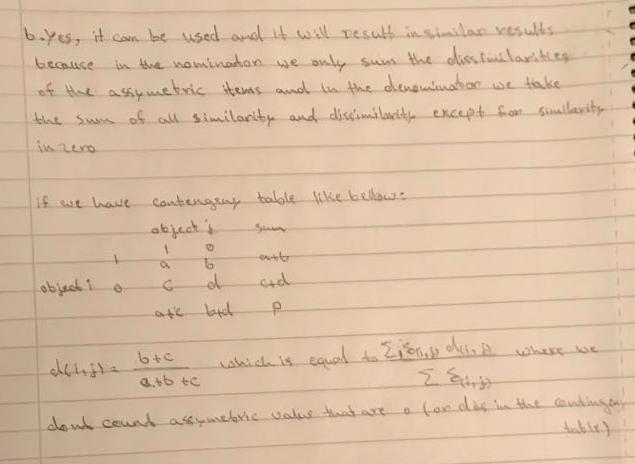 b. Yes, it can be used and it will result in similar results
because in the nominator we only sum the dissimilarities
of the assymetric items and in the denominator we take
the sum of all similarity and dissimilarity except for similarity
in zero
if we have contengeny table like bellow:
object j sum
1 0
1 a b a+b
object i 0 c d c+d
a+c b+d p
d(i,j) = b+c / a+b+c which is equal to Σ δ(i,j) d(i,j) / Σ δ(i,j) where we
dont count assymetric value that are 0 (or d is in the contingeny
table)